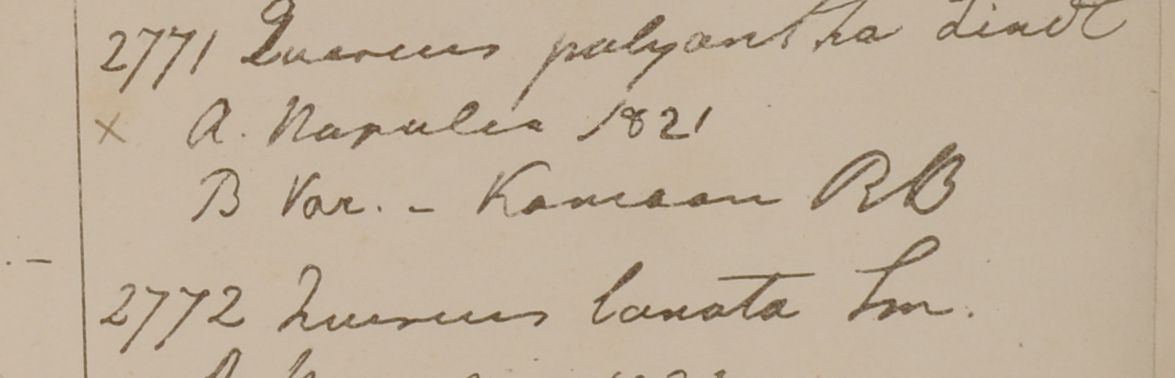 2771 Quercus polyantha Lindl
× A. Napulia 1821
B Var. - Kamaon RB
2772 Quercus lanata Sm.